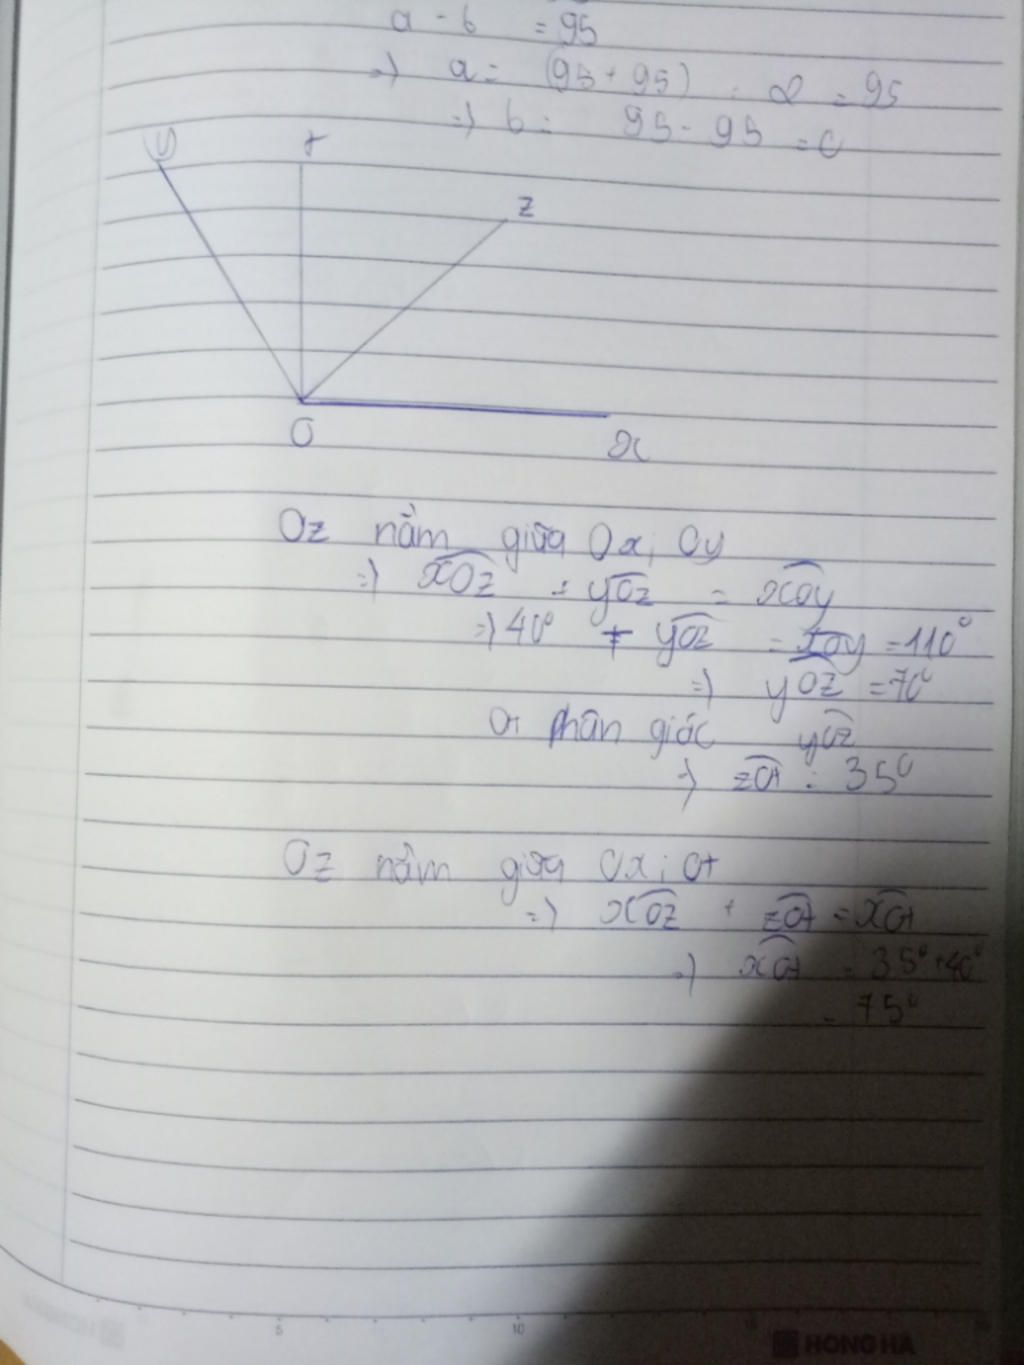 a - b = 95
=) a = (95 + 95) : 2 = 95
=) b = 95 - 95 = 0
y t
z
O
x
Oz nằm giữa Ox; Oy
=) xOz + yOz = xOy
=) 40° + yOz = xOy = 110°
=) yOz = 70°
Ot phân giác yOz
=) zOt = 35°
Oz nằm giữa Ox; Ot
=) xOz + zOt = xOt
=) xOt = 35° + 40°
= 75°
5 10
HONG HA